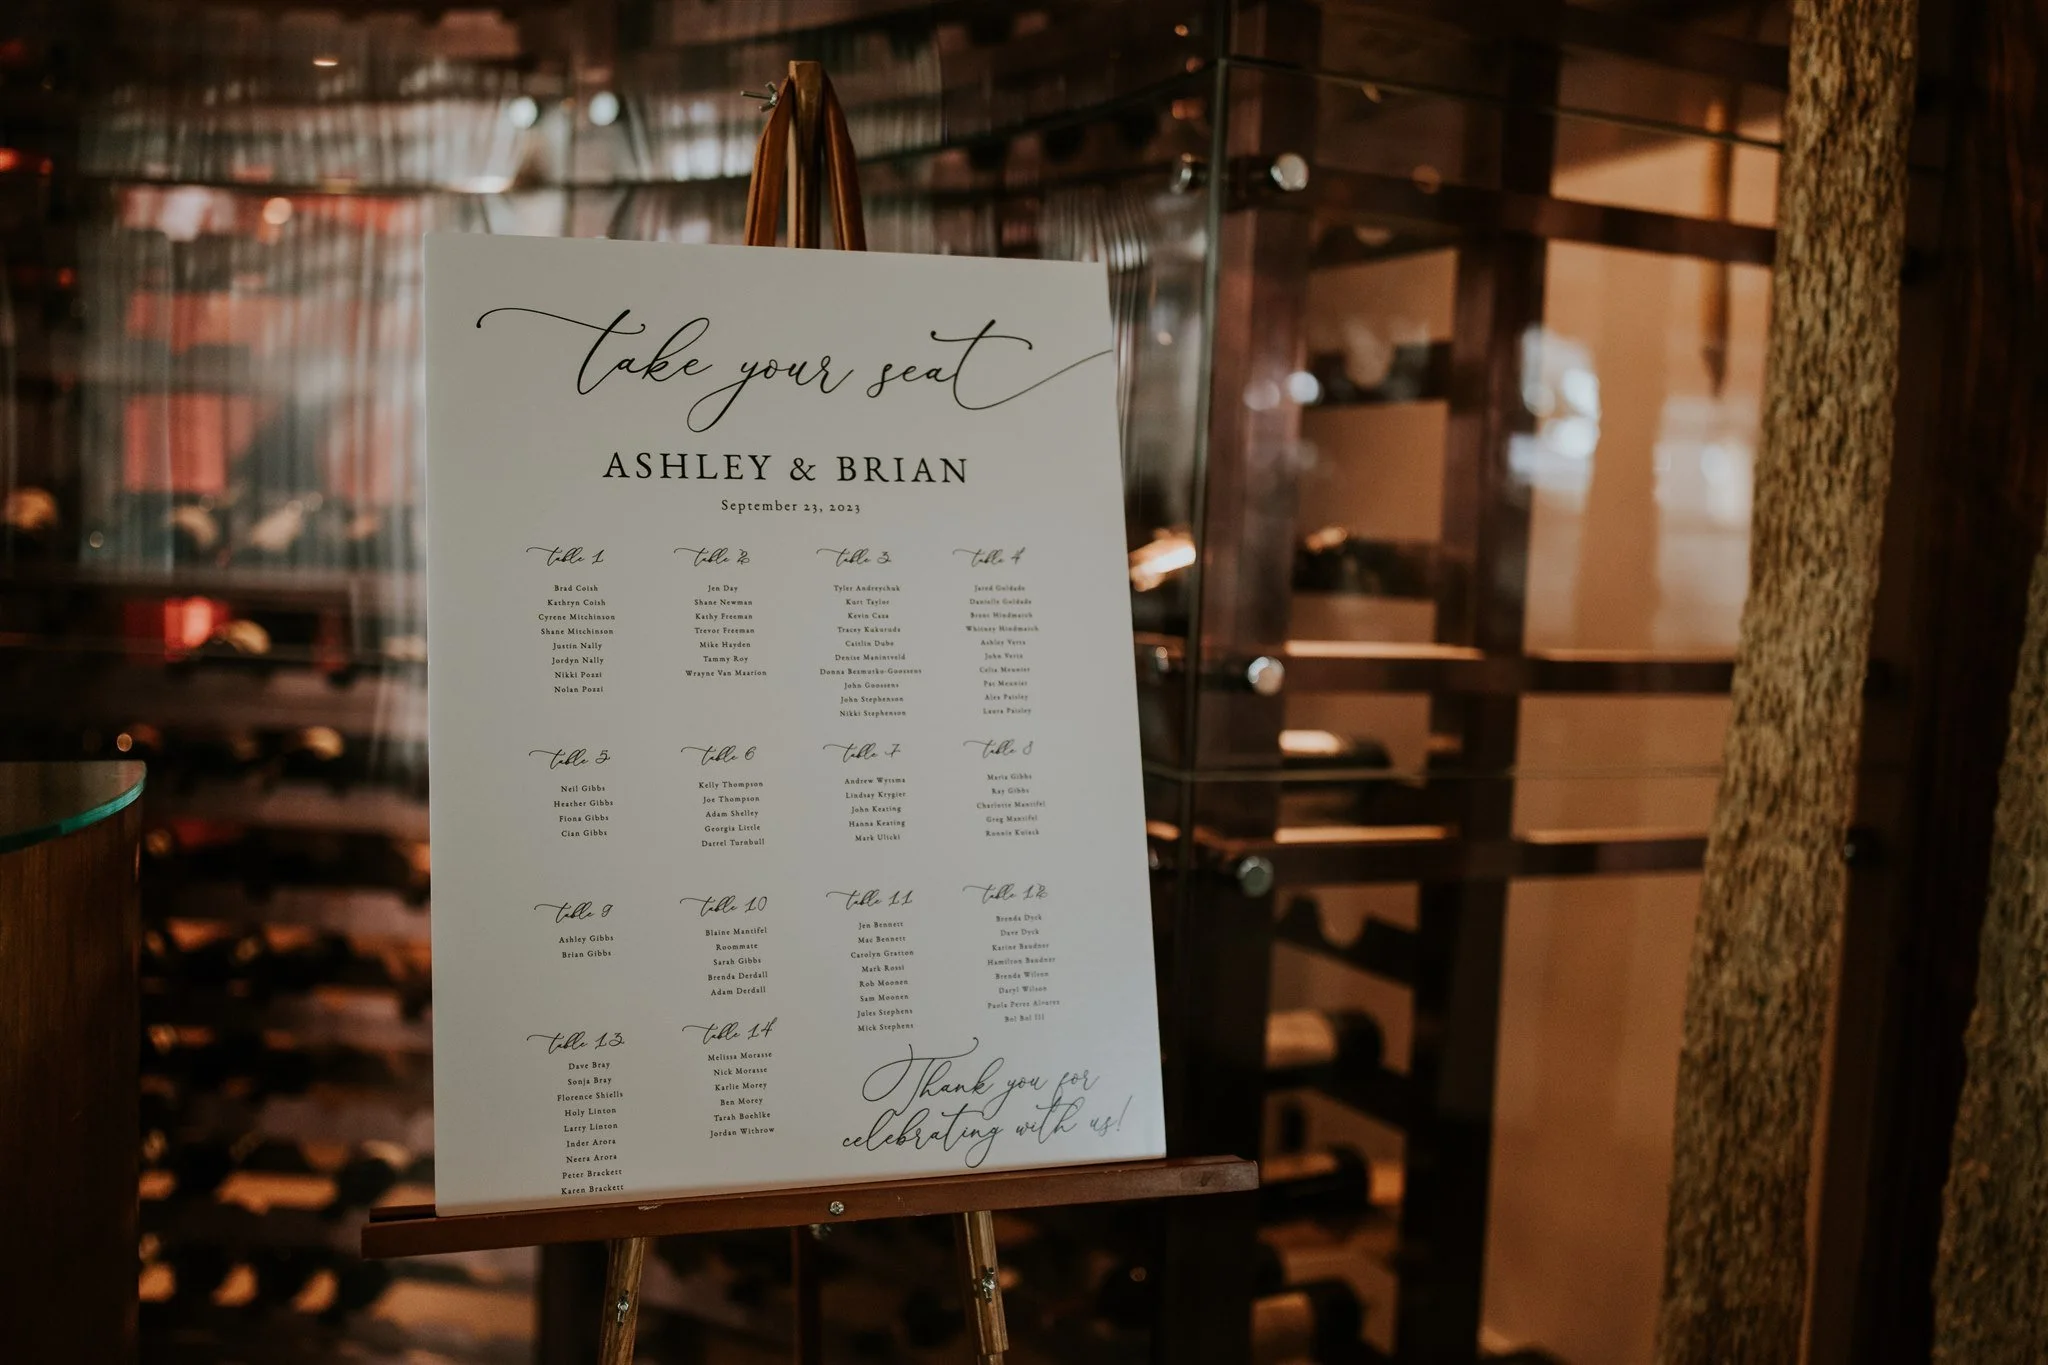 take your seat
ASHLEY & BRIAN
September 23, 2023
table 1
Brad Coish
Kathryn Coish
Cyrene Mitchinson
Shane Mitchinson
Justin Nally
Jordyn Nally
Nikki Pozzi
Nolan Pozzi
table 2
Jen Day
Shane Newman
Kathy Freeman
Trevor Freeman
Mike Hayden
Tammy Roy
Wrayne Van Maarion
table 3
Tyler Andreychuk
Kurt Taylor
Kevin Caza
Tracey Kukurudz
Caitlin Dube
Denise Manintveld
Donna Bezmutko-Goossens
John Goossens
John Stephenson
Nikki Stephenson
table 4
Jared Goldade
Danielle Goldade
Brent Hindmarch
Whitney Hindmarch
Ashley Vertz
John Vertz
Celia Meunier
Pat Meunier
Alex Paisley
Laura Paisley
table 5
Neil Gibbs
Heather Gibbs
Fiona Gibbs
Cian Gibbs
table 6
Kelly Thompson
Joe Thompson
Adam Shelley
Georgia Little
Darrel Turnbull
table 7
Andrew Wytsma
Lindsay Krygier
John Keating
Hanna Keating
Mark Ulicki
table 8
Maria Gibbs
Ray Gibbs
Charlotte Mantifel
Greg Mantifel
Ronnie
table 9
Ashley Gibbs
Brian Gibbs
table 10
Blaine Mantifel
Roommate
Sarah Gibbs
Brenda Derdall
Adam Derdall
table 11
Jen Bennett
Mac Bennett
Carolyn Gratton
Mark Rossi
Rob Moonen
Sam Moonen
Jules Stephens
Mick Stephens
table 12
Brenda Dyck
Dave Dyck
Karine Baudner
Hamilton Baudner
Brenda Wilson
Daryl Wilson
Paola Perez Alvarez
Bol Bol III
table 13
Dave Bray
Sonja Bray
Florence Shiells
Holy Linton
Larry Linton
Inder Arora
Neera Arora
Peter Brackett
Karen Brackett
table 14
Melissa Morasse
Nick Morasse
Karlie Morey
Ben Morey
Tarah Boehlke
Jordan Withrow
Thank you for
celebrating with us!